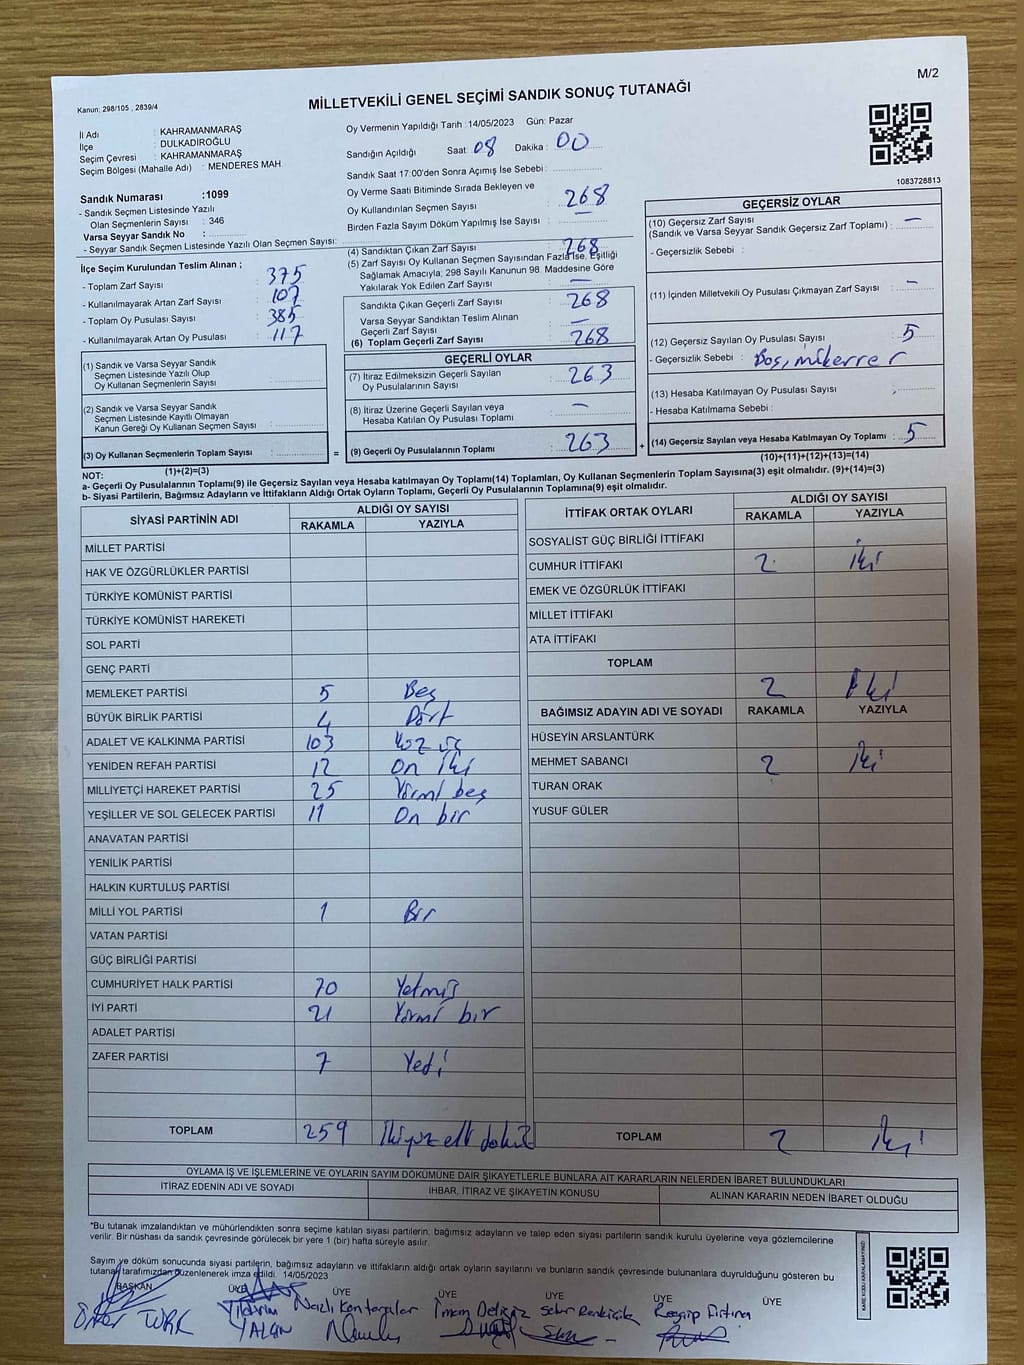 M/2
Kanun; 298/105 , 2839/4
MİLLETVEKİLİ GENEL SEÇİMİ SANDIK SONUÇ TUTANAĞI
İl Adı : KAHRAMANMARAŞ
İlçe : DULKADİROĞLU
Seçim Çevresi : KAHRAMANMARAŞ
Seçim Bölgesi (Mahalle Adı) : MENDERES MAH.
Sandık Numarası :1099
- Sandık Seçmen Listesinde Yazılı
Olan Seçmenlerin Sayısı : 346
Varsa Seyyar Sandık No :
- Seyyar Sandık Seçmen Listesinde Yazılı Olan Seçmen Sayısı:
Oy Vermenin Yapıldığı Tarih :14/05/2023 Gün: Pazar
Sandığın Açıldığı Saat : 08 Dakika : 00
Sandık Saat 17:00'den Sonra Açımış İse Sebebi :
Oy Verme Saati Bitiminde Sırada Bekleyen ve
Oy Kullandırılan Seçmen Sayısı : 268
Birden Fazla Sayım Döküm Yapılmış İse Sayısı : —
1083728813
İlçe Seçim Kurulundan Teslim Alınan ;
- Toplam Zarf Sayısı : 375
- Kullanılmayarak Artan Zarf Sayısı : 107
- Toplam Oy Pusulası Sayısı : 385
- Kullanılmayarak Artan Oy Pusulası : 117
(1) Sandık ve Varsa Seyyar Sandık
Seçmen Listesinde Yazılı Olup
Oy Kullanan Seçmenlerin Sayısı :
(2) Sandık ve Varsa Seyyar Sandık
Seçmen Listesinde Kayıtlı Olmayan
Kanun Gereği Oy Kullanan Seçmen Sayısı :
(3) Oy Kullanan Seçmenlerin Toplam Sayısı :
(1)+(2)=(3)
(4) Sandıktan Çıkan Zarf Sayısı : 268
(5) Zarf Sayısı Oy Kullanan Seçmen Sayısından Fazla İse, Eşitliği
Sağlamak Amacıyla; 298 Sayılı Kanunun 98. Maddesine Göre
Yakılarak Yok Edilen Zarf Sayısı : —
Sandıkta Çıkan Geçerli Zarf Sayısı : 268
Varsa Seyyar Sandıktan Teslim Alınan
Geçerli Zarf Sayısı : —
(6) Toplam Geçerli Zarf Sayısı : 268
GEÇERLİ OYLAR
(7) İtiraz Edilmeksizin Geçerli Sayılan
Oy Pusulalarının Sayısı : 263
(8) İtiraz Üzerine Geçerli Sayılan veya
Hesaba Katılan Oy Pusulası Toplamı : —
= (9) Geçerli Oy Pusulalarının Toplamı : 263 +
GEÇERSİZ OYLAR
(10) Geçersiz Zarf Sayısı
(Sandık ve Varsa Seyyar Sandık Geçersiz Zarf Toplamı) : —
- Geçersizlik Sebebi :
(11) İçinden Milletvekili Oy Pusulası Çıkmayan Zarf Sayısı : —
(12) Geçersiz Sayılan Oy Pusulası Sayısı : 5
- Geçersizlik Sebebi : Boş, mükerrer
(13) Hesaba Katılmayan Oy Pusulası Sayısı :
- Hesaba Katılmama Sebebi :
(14) Geçersiz Sayılan veya Hesaba Katılmayan Oy Toplamı : 5
(10)+(11)+(12)+(13)=(14)
NOT:
a- Geçerli Oy Pusulalarının Toplamı(9) ile Geçersiz Sayılan veya Hesaba katılmayan Oy Toplamı(14) Toplamları, Oy Kullanan Seçmenlerin Toplam Sayısına(3) eşit olmalıdır. (9)+(14)=(3)
b- Siyasi Partilerin, Bağımsız Adayların ve İttifakların Aldığı Ortak Oyların Toplamı, Geçerli Oy Pusulalarının Toplamına(9) eşit olmalıdır.
SİYASİ PARTİNİN ADI ALDIĞI OY SAYISI
RAKAMLA YAZIYLA
MİLLET PARTİSİ
HAK VE ÖZGÜRLÜKLER PARTİSİ
TÜRKİYE KOMÜNİST PARTİSİ
TÜRKİYE KOMÜNİST HAREKETİ
SOL PARTİ
GENÇ PARTİ
MEMLEKET PARTİSİ 5 Beş
BÜYÜK BİRLİK PARTİSİ 4 Dört
ADALET VE KALKINMA PARTİSİ 103 Yüz üç
YENİDEN REFAH PARTİSİ 12 On iki
MİLLİYETÇİ HAREKET PARTİSİ 25 Yirmi beş
YEŞİLLER VE SOL GELECEK PARTİSİ 11 On bir
ANAVATAN PARTİSİ
YENİLİK PARTİSİ
HALKIN KURTULUŞ PARTİSİ
MİLLİ YOL PARTİSİ 1 Bir
VATAN PARTİSİ
GÜÇ BİRLİĞİ PARTİSİ
CUMHURİYET HALK PARTİSİ 70 Yetmiş
İYİ PARTİ 21 Yirmi bir
ADALET PARTİSİ
ZAFER PARTİSİ 7 Yedi
TOPLAM 259 İkiyüz elli dokuz
İTTİFAK ORTAK OYLARI ALDIĞI OY SAYISI
RAKAMLA YAZIYLA
SOSYALİST GÜÇ BİRLİĞİ İTTİFAKI
CUMHUR İTTİFAKI 2 iki
EMEK VE ÖZGÜRLÜK İTTİFAKI
MİLLET İTTİFAKI
ATA İTTİFAKI
TOPLAM
2 İki
BAĞIMSIZ ADAYIN ADI VE SOYADI RAKAMLA YAZIYLA
HÜSEYİN ARSLANTÜRK
MEHMET SABANCI 2 iki
TURAN ORAK
YUSUF GÜLER
TOPLAM 2 iki
OYLAMA İŞ VE İŞLEMLERİNE VE OYLARIN SAYIM DÖKÜMÜNE DAİR ŞİKAYETLERLE BUNLARA AİT KARARLARIN NELERDEN İBARET BULUNDUKLARI
İTİRAZ EDENİN ADI VE SOYADI İHBAR, İTİRAZ VE ŞİKAYETİN KONUSU ALINAN KARARIN NEDEN İBARET OLDUĞU
*Bu tutanak imzalandıktan ve mühürlendikten sonra seçime katılan siyasi partilerin, bağımsız adayların ve talep eden siyasi partilerin sandık kurulu üyelerine veya gözlemcilerine
verilir. Bir nüshası da sandık çevresinde görülecek bir yere 1 (bir) hafta süreyle asılır.
Sayım ve döküm sonucunda siyasi partilerin, bağımsız adayların ve ittifakların aldığı ortak oyların sayılarını ve bunların sandık çevresinde bulunanlara duyrulduğunu gösteren bu
tutanak tarafımızdan düzenlenerek imza edildi. 14/05/2023
KARE KODU KARALAMAYINIZ!
BAŞKAN ÜYE ÜYE ÜYE ÜYE ÜYE ÜYE
Ömer TÜRK Yıldırım YALÇIN Nazlı İmam Seher Fırtına